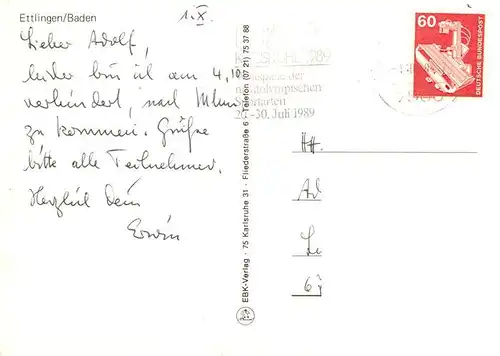 Ettlingen/Baden
1.X.
Lieber Adolf,
leider bin ich am 4.10
verhindert, nach
zu kommen. Grüße
bitte alle Teilnehmer.
Herzlich Dein
Erwin
EBK-Verlag · 75 Karlsruhe 31 · Fliederstraße 6 · Telefon (07 21) 75 37 88
1989
der
olympischen
arten
20.-30. Juli 1989
60
DEUTSCHE BUNDESPOST
HH.
Ad
Le